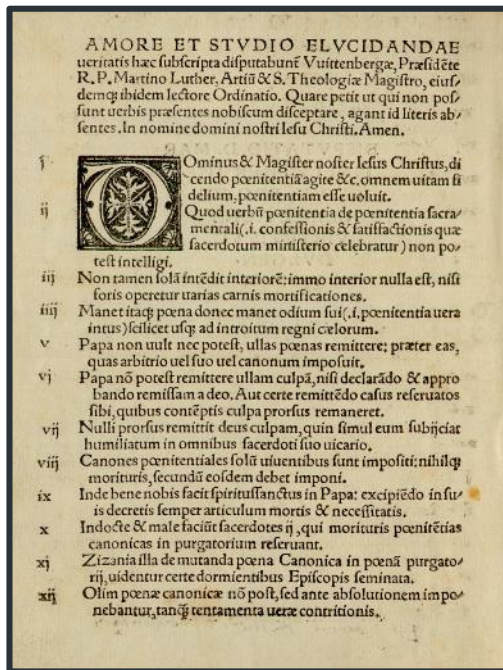 AMORE ET STVDIO ELVCIDANDAE
ueritatis hæc subscripta disputabunt̃ Vuittenbergæ, Præsidẽte
R. P. Martino Luther, Artiũ & S. Theologiæ Magistro, eius/
demq; ibidem lectore Ordinatio. Quare petit ut qui non pos/
sunt uerbis præsentes nobiscum disceptare, agant id literis ab/
sentes. In nomine domini nostri Iesu Christi. Amen.
j Ominus & Magister noster Iesus Christus, di
cendo pœnitentiã agite &c. omnem uitam fi
delium, pœnitentiam esse uoluit.
ij Quod uerbũ pœnitentia de pœnitentia sacra/
mentali (.i. confessionis & satisfactionis quæ
sacerdotum ministerio celebratur) non po/
test intelligi.
iij Non tamen solã intẽdit interiorẽ: immo interior nulla est, nisi
foris operetur uarias carnis mortificationes.
iiij Manet itaq; pœna donec manet odium sui (.i. pœnitentia uera
intus) scilicet usq; ad introitum regni cælorum.
v Papa non uult nec potest, ullas pœnas remittere: præter eas,
quas arbitrio uel suo uel canonum imposuit.
vj Papa nõ potest remittere ullam culpã, nisi declarãdo & appro
bando remissam a deo. Aut certe remittẽdo casus reseruatos
sibi, quibus contẽptis culpa prorsus remaneret.
vij Nulli prorsus remittit deus culpam, quin simul eum subijciat
humiliatum in omnibus sacerdoti suo uicario.
viij Canones pœnitentiales solũ uiuentibus sunt impositi: nihilq;
morituris, secundũ eosdem debet imponi.
ix Inde bene nobis facit spiritussanctus in Papa: excipiẽdo in su/
is decretis semper articulum mortis & necessitatis.
x Indocte & male faciũt sacerdotes ij, qui morituris pœnitẽtias
canonicas in purgatorium reseruant.
xj Zizania illa de mutanda pœna Canonica in pœnã purgato/
rij, uidentur certe dormientibus Episcopis seminata.
xij Olim pœnæ canonicæ nõ post, sed ante absolutionem impo/
nebantur, tanq; tentamenta ueræ contritionis.